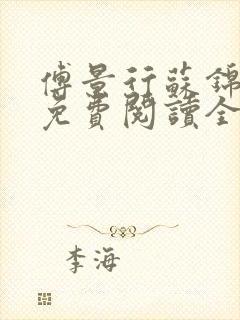 傅景行蘇錦
免費閱讀全
李海